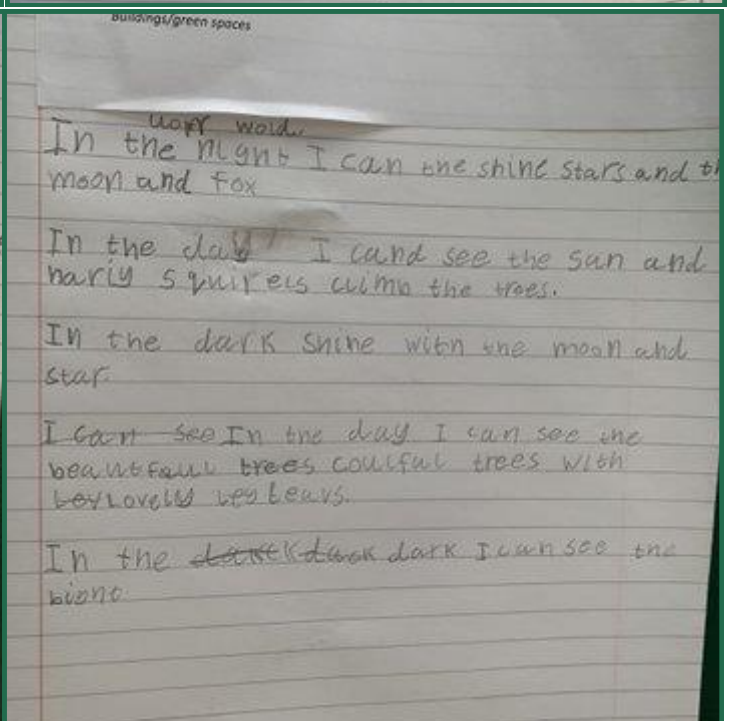 Buildings/green spaces
word
In the night I can the shine stars and th
moon and fox
In the day I cand see the sun and
harly squirels climb the trees.
In the dark shine with the moon and
star.
I can see In the day I can see the
beautfaul trees coulful trees with
lovely leavs.
In the dark I can see the